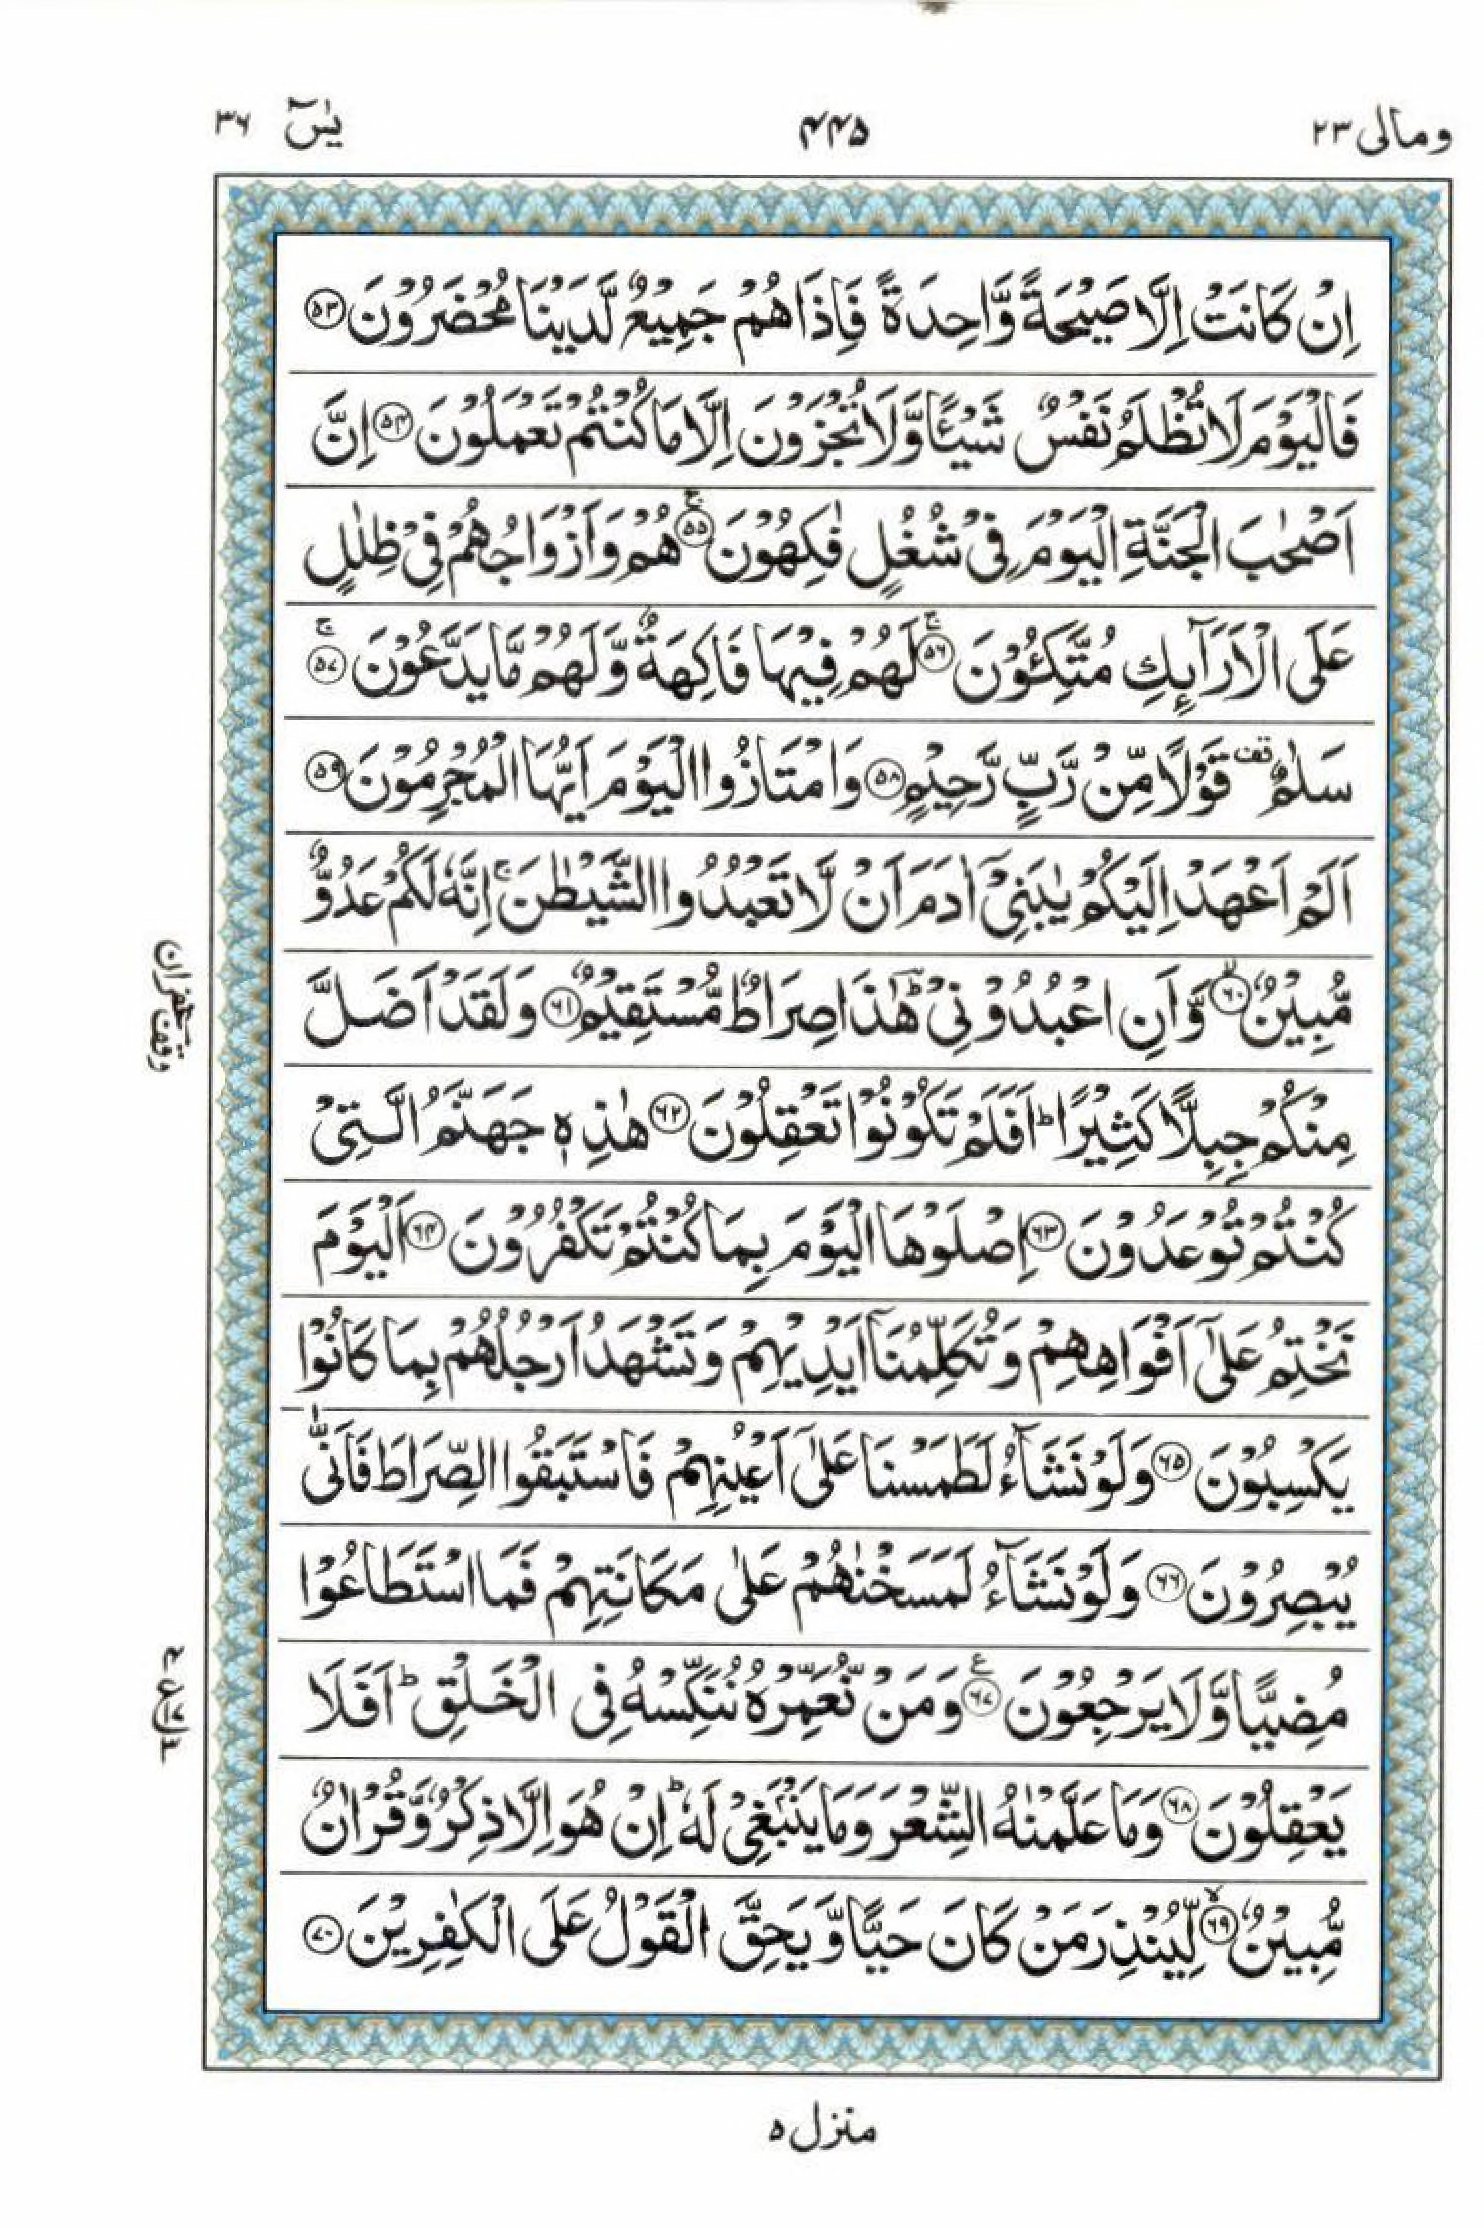 ومالی ۲۳ ۴۴۵ یٰسٓ ۳۶
اِنْ كَانَتْ اِلَّا صَيْحَةً وَّاحِدَةً فَاِذَا هُمْ جَمِيْعٌ لَّدَيْنَا مُحْضَرُوْنَ ۵۳
فَالْيَوْمَ لَا تُظْلَمُ نَفْسٌ شَيْـًٔا وَّلَا تُجْزَوْنَ اِلَّا مَا كُنْتُمْ تَعْمَلُوْنَ ۵۴ اِنَّ
اَصْحٰبَ الْجَنَّةِ الْيَوْمَ فِيْ شُغُلٍ فٰكِهُوْنَ ۵۵ۚ هُمْ وَاَزْوَاجُهُمْ فِيْ ظِلٰلٍ
عَلَى الْاَرَآىِٕكِ مُتَّكِـُٔوْنَ ۵۶ۚ لَهُمْ فِيْهَا فَاكِهَةٌ وَّلَهُمْ مَّا يَدَّعُوْنَ ۵۷ۚ
سَلٰمٌ قف قَوْلًا مِّنْ رَّبٍّ رَّحِيْمٍ ۵۸ وَامْتَازُوا الْيَوْمَ اَيُّهَا الْمُجْرِمُوْنَ ۵۹
اَلَمْ اَعْهَدْ اِلَيْكُمْ يٰبَنِيْٓ اٰدَمَ اَنْ لَّا تَعْبُدُوا الشَّيْطٰنَ ۚ اِنَّهٗ لَكُمْ عَدُوٌّ
مُّبِيْنٌ ۶۰ۙ وَّاَنِ اعْبُدُوْنِيْ ؕ هٰذَا صِرَاطٌ مُّسْتَقِيْمٌ ۶۱ وَلَقَدْ اَضَلَّ
وقف غفران
مِنْكُمْ جِبِلًّا كَثِيْرًا ؕ اَفَلَمْ تَكُوْنُوْا تَعْقِلُوْنَ ۶۲ هٰذِهٖ جَهَنَّمُ الَّتِيْ
كُنْتُمْ تُوْعَدُوْنَ ۶۳ اِصْلَوْهَا الْيَوْمَ بِمَا كُنْتُمْ تَكْفُرُوْنَ ۶۴ اَلْيَوْمَ
نَخْتِمُ عَلٰٓى اَفْوَاهِهِمْ وَتُكَلِّمُنَآ اَيْدِيْهِمْ وَتَشْهَدُ اَرْجُلُهُمْ بِمَا كَانُوْا
يَكْسِبُوْنَ ۶۵ وَلَوْ نَشَآءُ لَطَمَسْنَا عَلٰٓى اَعْيُنِهِمْ فَاسْتَبَقُوا الصِّرَاطَ فَاَنّٰى
يُبْصِرُوْنَ ۶۶ وَلَوْ نَشَآءُ لَمَسَخْنٰهُمْ عَلٰى مَكَانَتِهِمْ فَمَا اسْتَطَاعُوْا
مُضِيًّا وَّلَا يَرْجِعُوْنَ ۶۷ ع وَمَنْ نُّعَمِّرْهُ نُنَكِّسْهُ فِي الْخَلْقِ ؕ اَفَلَا
يَعْقِلُوْنَ ۶۸ وَمَا عَلَّمْنٰهُ الشِّعْرَ وَمَا يَنْۢبَغِيْ لَهٗ ؕ اِنْ هُوَ اِلَّا ذِكْرٌ وَّقُرْاٰنٌ
مُّبِيْنٌ ۶۹ۙ لِّيُنْذِرَ مَنْ كَانَ حَيًّا وَّيَحِقَّ الْقَوْلُ عَلَى الْكٰفِرِيْنَ ۷۰
منزل ۵